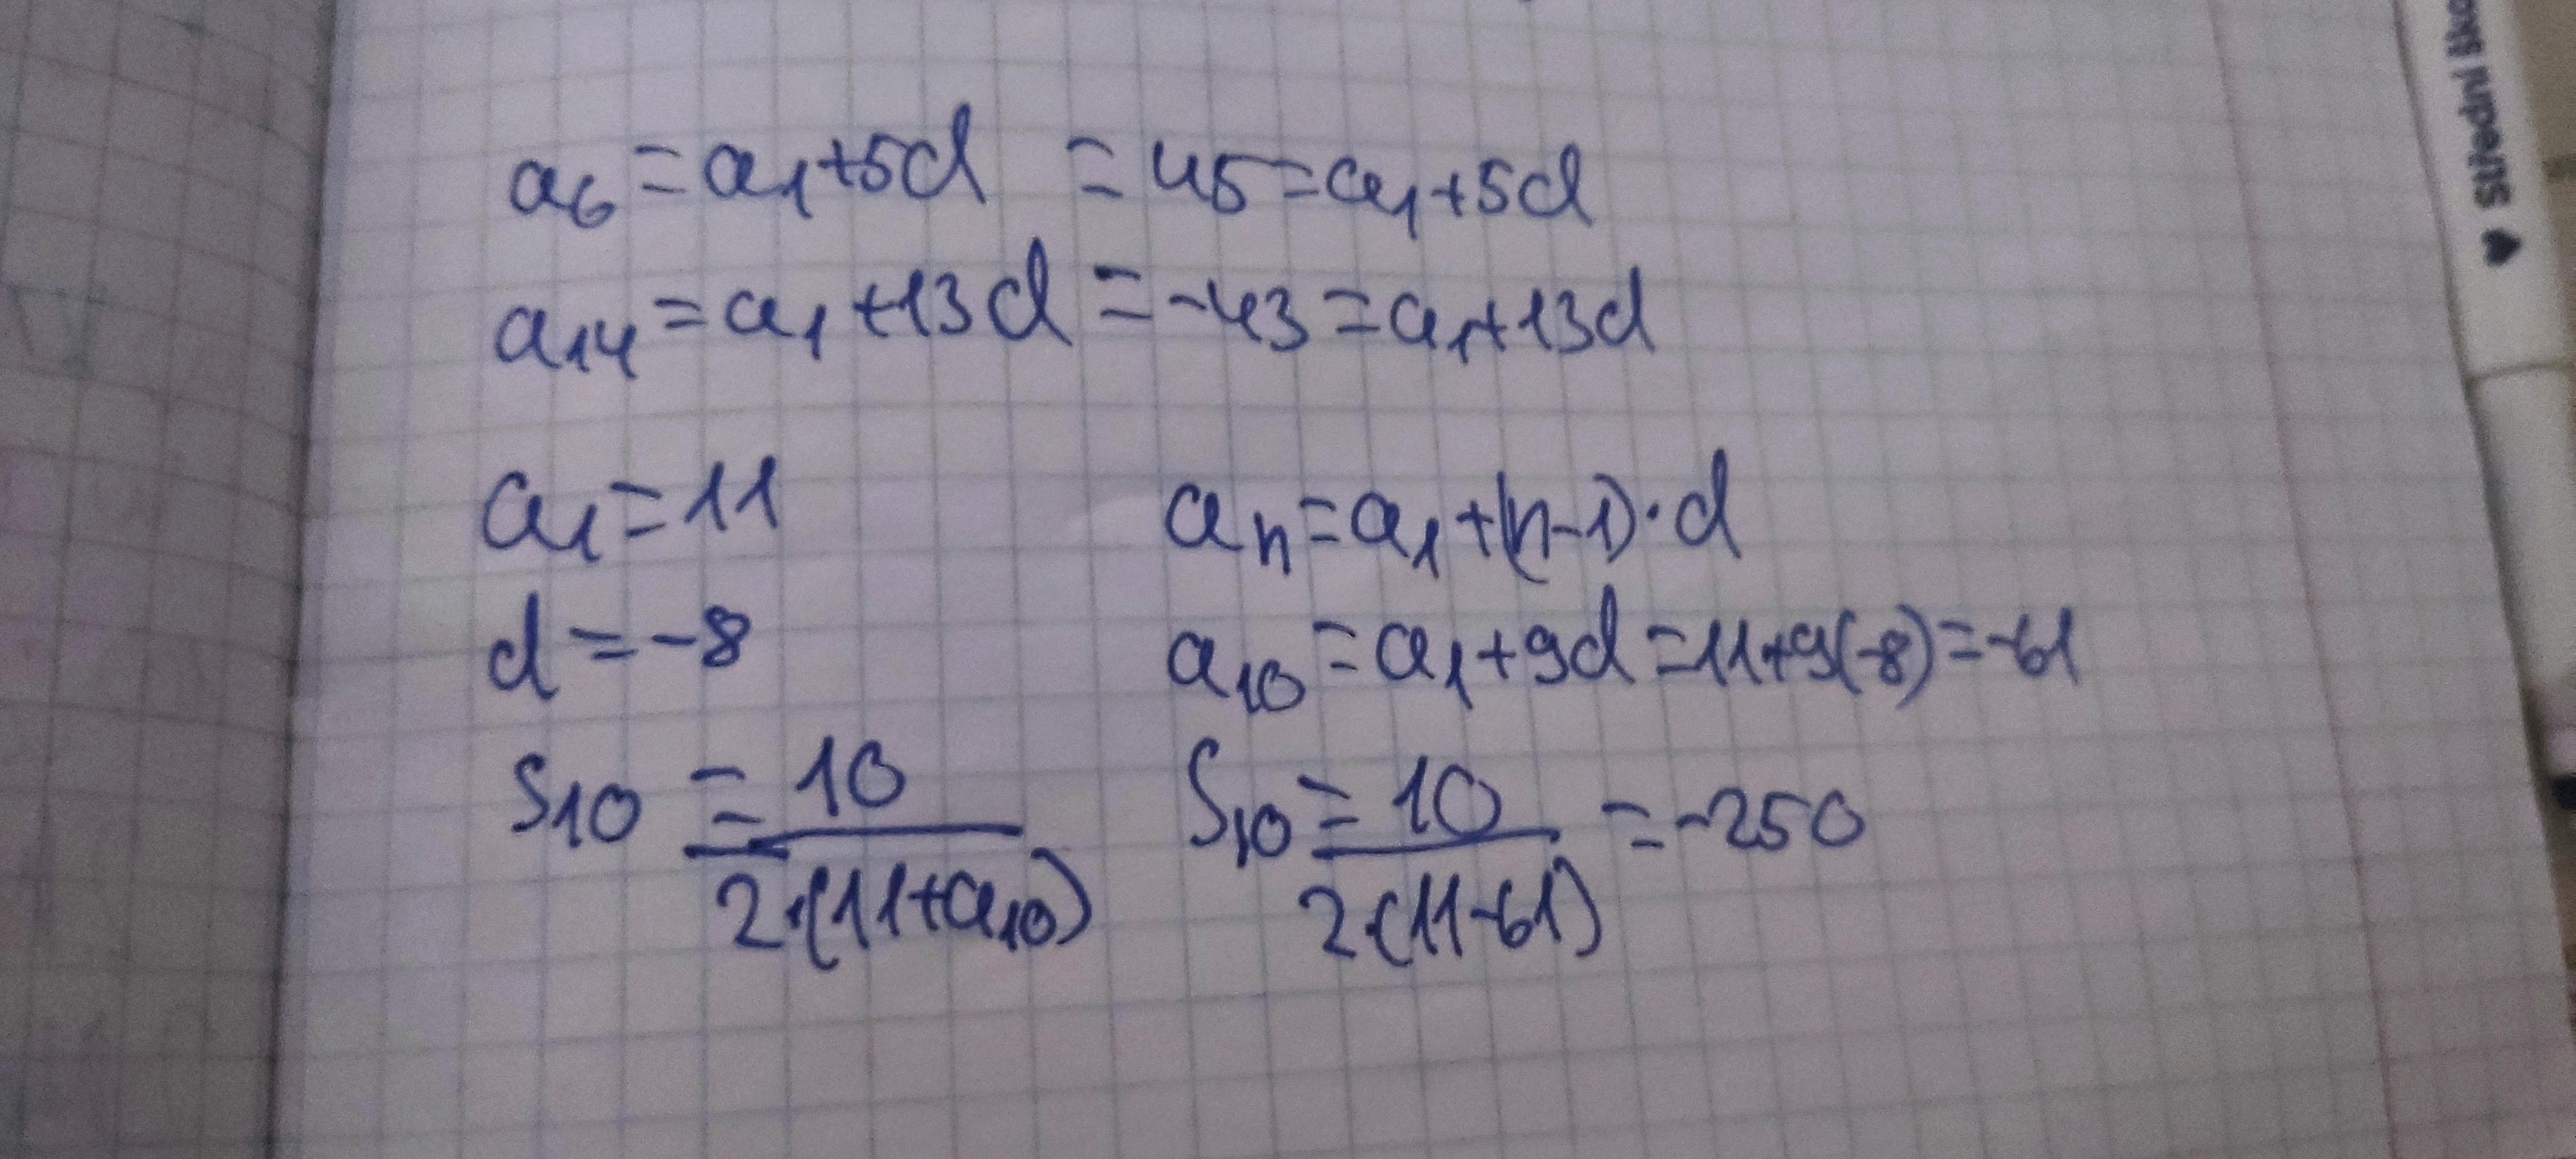 a₆=a₁+5d =45=a₁+5d
a₁₄=a₁+13d=-43=a₁+13d
a₁=11 aₙ=a₁+(n-1)·d
d=-8 a₁₀=a₁+9d=11+9(-8)=-61
S₁₀=10/2·(11+a₁₀) S₁₀=10/2·(11-61)=-250